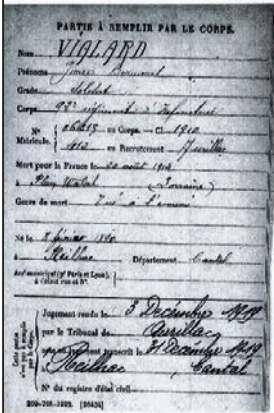 PARTIE À REMPLIR PAR LE CORPS.
Nom VIALARD
Prénoms Bernard
Grade Soldat
Corps 92e régiment d'Infanterie
N° 06015 au Corps. — Cl. 1910
Matricule. 1012 au Recrutement Aurillac
Mort pour la France le 20 août 1914
à (Lorraine)
Genre de mort Tué à l'ennemi
Né le février 1890
à Reilhac Département Cantal
Arrt municipal (pr Paris et Lyon), à défaut rue et N°.
Cette partie n'est pas à remplir par le Corps.
Jugement rendu le 3 Décembre 1919
par le Tribunal de Aurillac
transcrit le 31 Décembre 1919
Reilhac, Cantal
N° du registre d'état civil
209-708-1922. [26434]